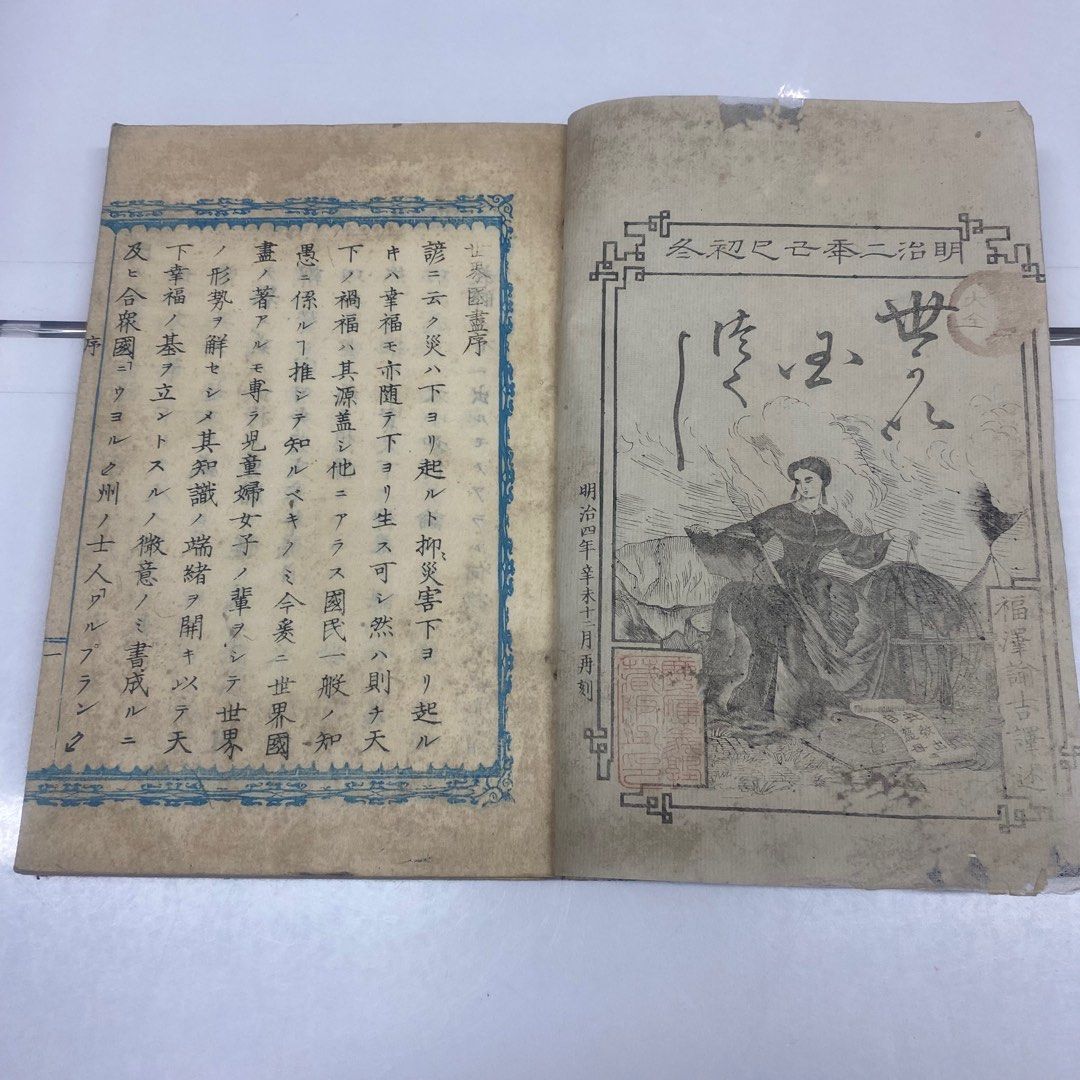 明治二秊己巳初冬
世かい
国
つく
し
福澤諭吉譯述
明治四年辛未十二月再刻
慶應義塾蔵版之印
世界國盡序
諺ニ云ク災ハ下ヨリ起ルト抑〻災害下ヨリ起ル
キハ幸福モ亦随テ下ヨリ生ス可シ然ハ則チ天
下ノ禍福ハ其源蓋シ他ニアラス國民一般ノ知
愚ニ係ルヿ推シテ知ルベキノミ今爰ニ世界國
盡ノ著アルモ専ラ児童婦女子ノ輩ヲシテ世界
ノ形勢ヲ解セシメ其知識ノ端緒ヲ開キ以テ天
下幸福ノ基ヲ立ントスルノ微意ノミ書成ルニ
及ヒ合衆國「ニウヨルク」州ノ士人「ワルブランク」
序
一